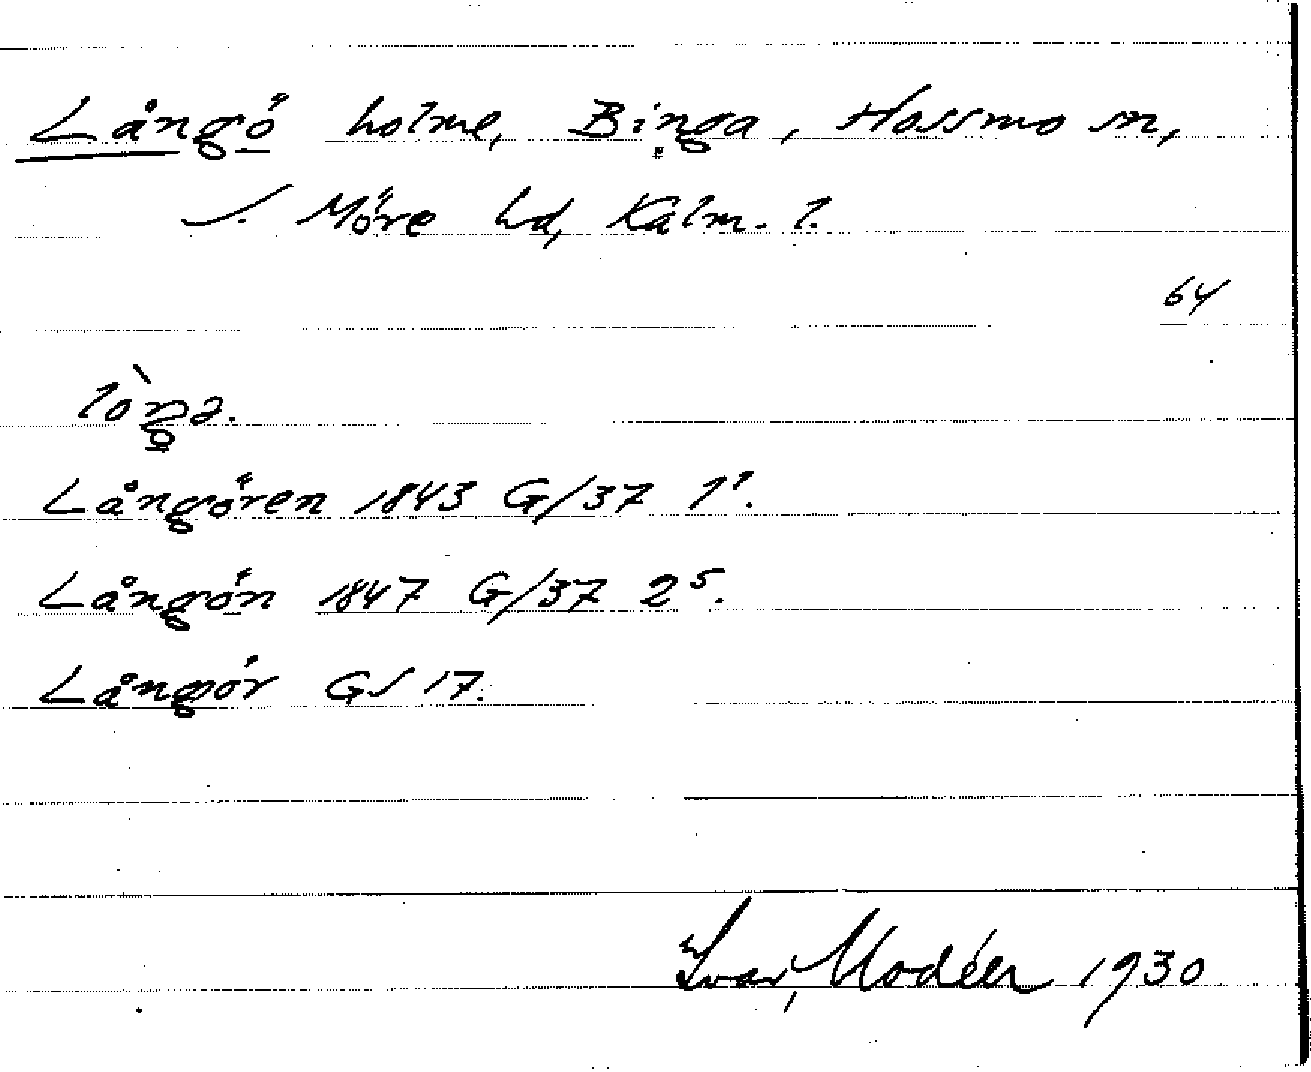 Långö holme, Binga, Hossmo sn,
S. Möre hd, Kalm. l.
64
Långören 1843 G/37 1¹.
Långön 1847 G/37 2⁵.
Långör GS 17.
Ivar Modéer 1930